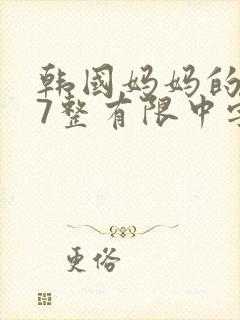 韩国妈妈的
7整有限中字
更俗